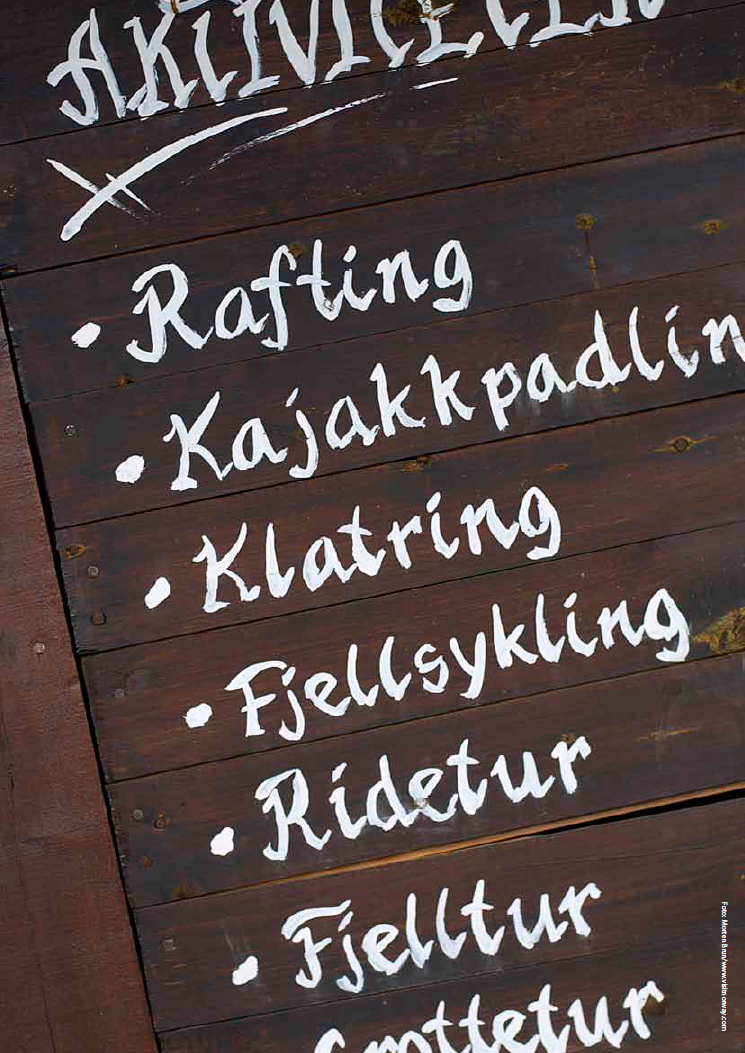 AKTIVITETER
• Rafting
• Kajakkpadlin
• Klatring
• Fjellsykling
• Ridetur
• Fjelltur
Grottetur
Foto: Morten Brun/www.visitnorway.com